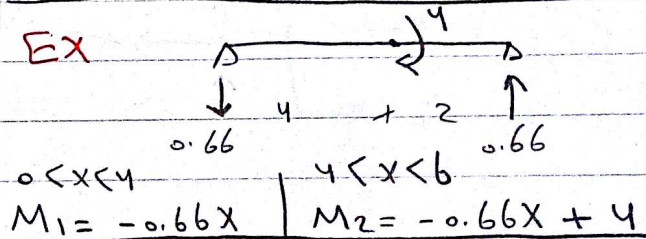 Ex
4
4 + 2
0.66 0.66
0<x<4 | 4<x<6
M1 = -0.66x | M2 = -0.66x + 4